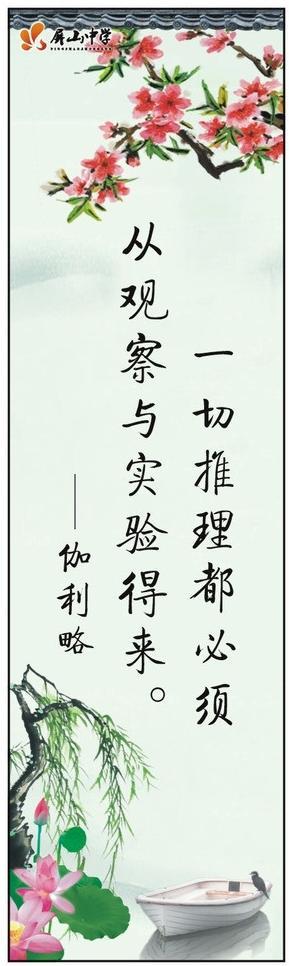 屏山中学
一切推理都必须
从观察与实验得来。
——伽利略